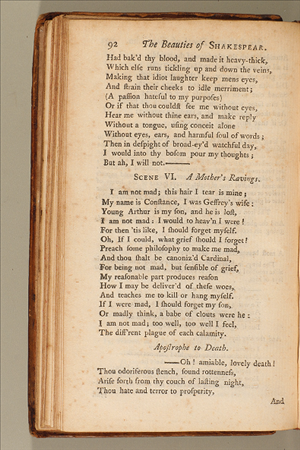 92 The Beauties of SHAKESPEAR.
Had bak'd thy blood, and made it heavy-thick,
Which else runs tickling up and down the veins,
Making that idiot laughter keep mens eyes,
And strain their cheeks to idle merriment;
(A passion hateful to my purposes)
Or if that thou couldst see me without eyes,
Hear me without thine ears, and make reply
Without a tongue, using conceit alone
Without eyes, ears, and harmful soul of words;
Then in despight of broad-ey'd watchful day,
I would into thy bosom pour my thoughts;
But ah, I will not.———
SCENE VI. A Mother's Ravings.
I am not mad; this hair I tear is mine;
My name is Constance, I was Geffrey's wife:
Young Arthur is my son, and he is lost,
I am not mad: I would to heav'n I were!
For then 'tis like, I should forget myself.
Oh, If I could, what grief should I forget!
Preach some philosophy to make me mad,
And thou shalt be canoniz'd Cardinal,
For being not mad, but sensible of grief,
My reasonable part produces reason
How I may be deliver'd of these woes,
And teaches me to kill or hang myself.
If I were mad, I should forget my son,
Or madly think, a babe of clouts were he:
I am not mad; too well, too well I feel,
The diff'rent plague of each calamity.
Apostrophe to Death.
——Oh! amiable, lovely death!
Thou odoriferous stench, sound rottenness,
Arise forth from thy couch of lasting night,
Thou hate and terror to prosperity,
And